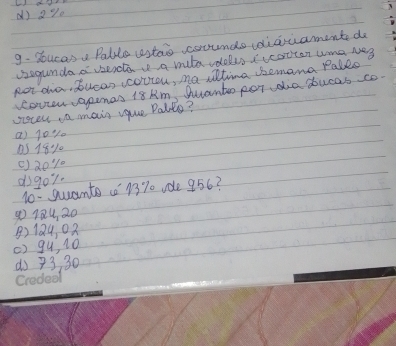 d) 2%
9- Lucas e Pablo estão correndo diáriamente de
segunda á sexta e a mita deles é correr uma vez
por dia, Lucas correu, na última semana Pablo
correu apenas 18 Km, Quantos por dia Lucas co-
rreu a mais que Pablo?
a) 10%
b) 18%
c) 20%
d) 90%
10- Quanto é 13% de 956?
a) 124,20
b) 124,02
c) 94,10
d) 73,30
Credeal